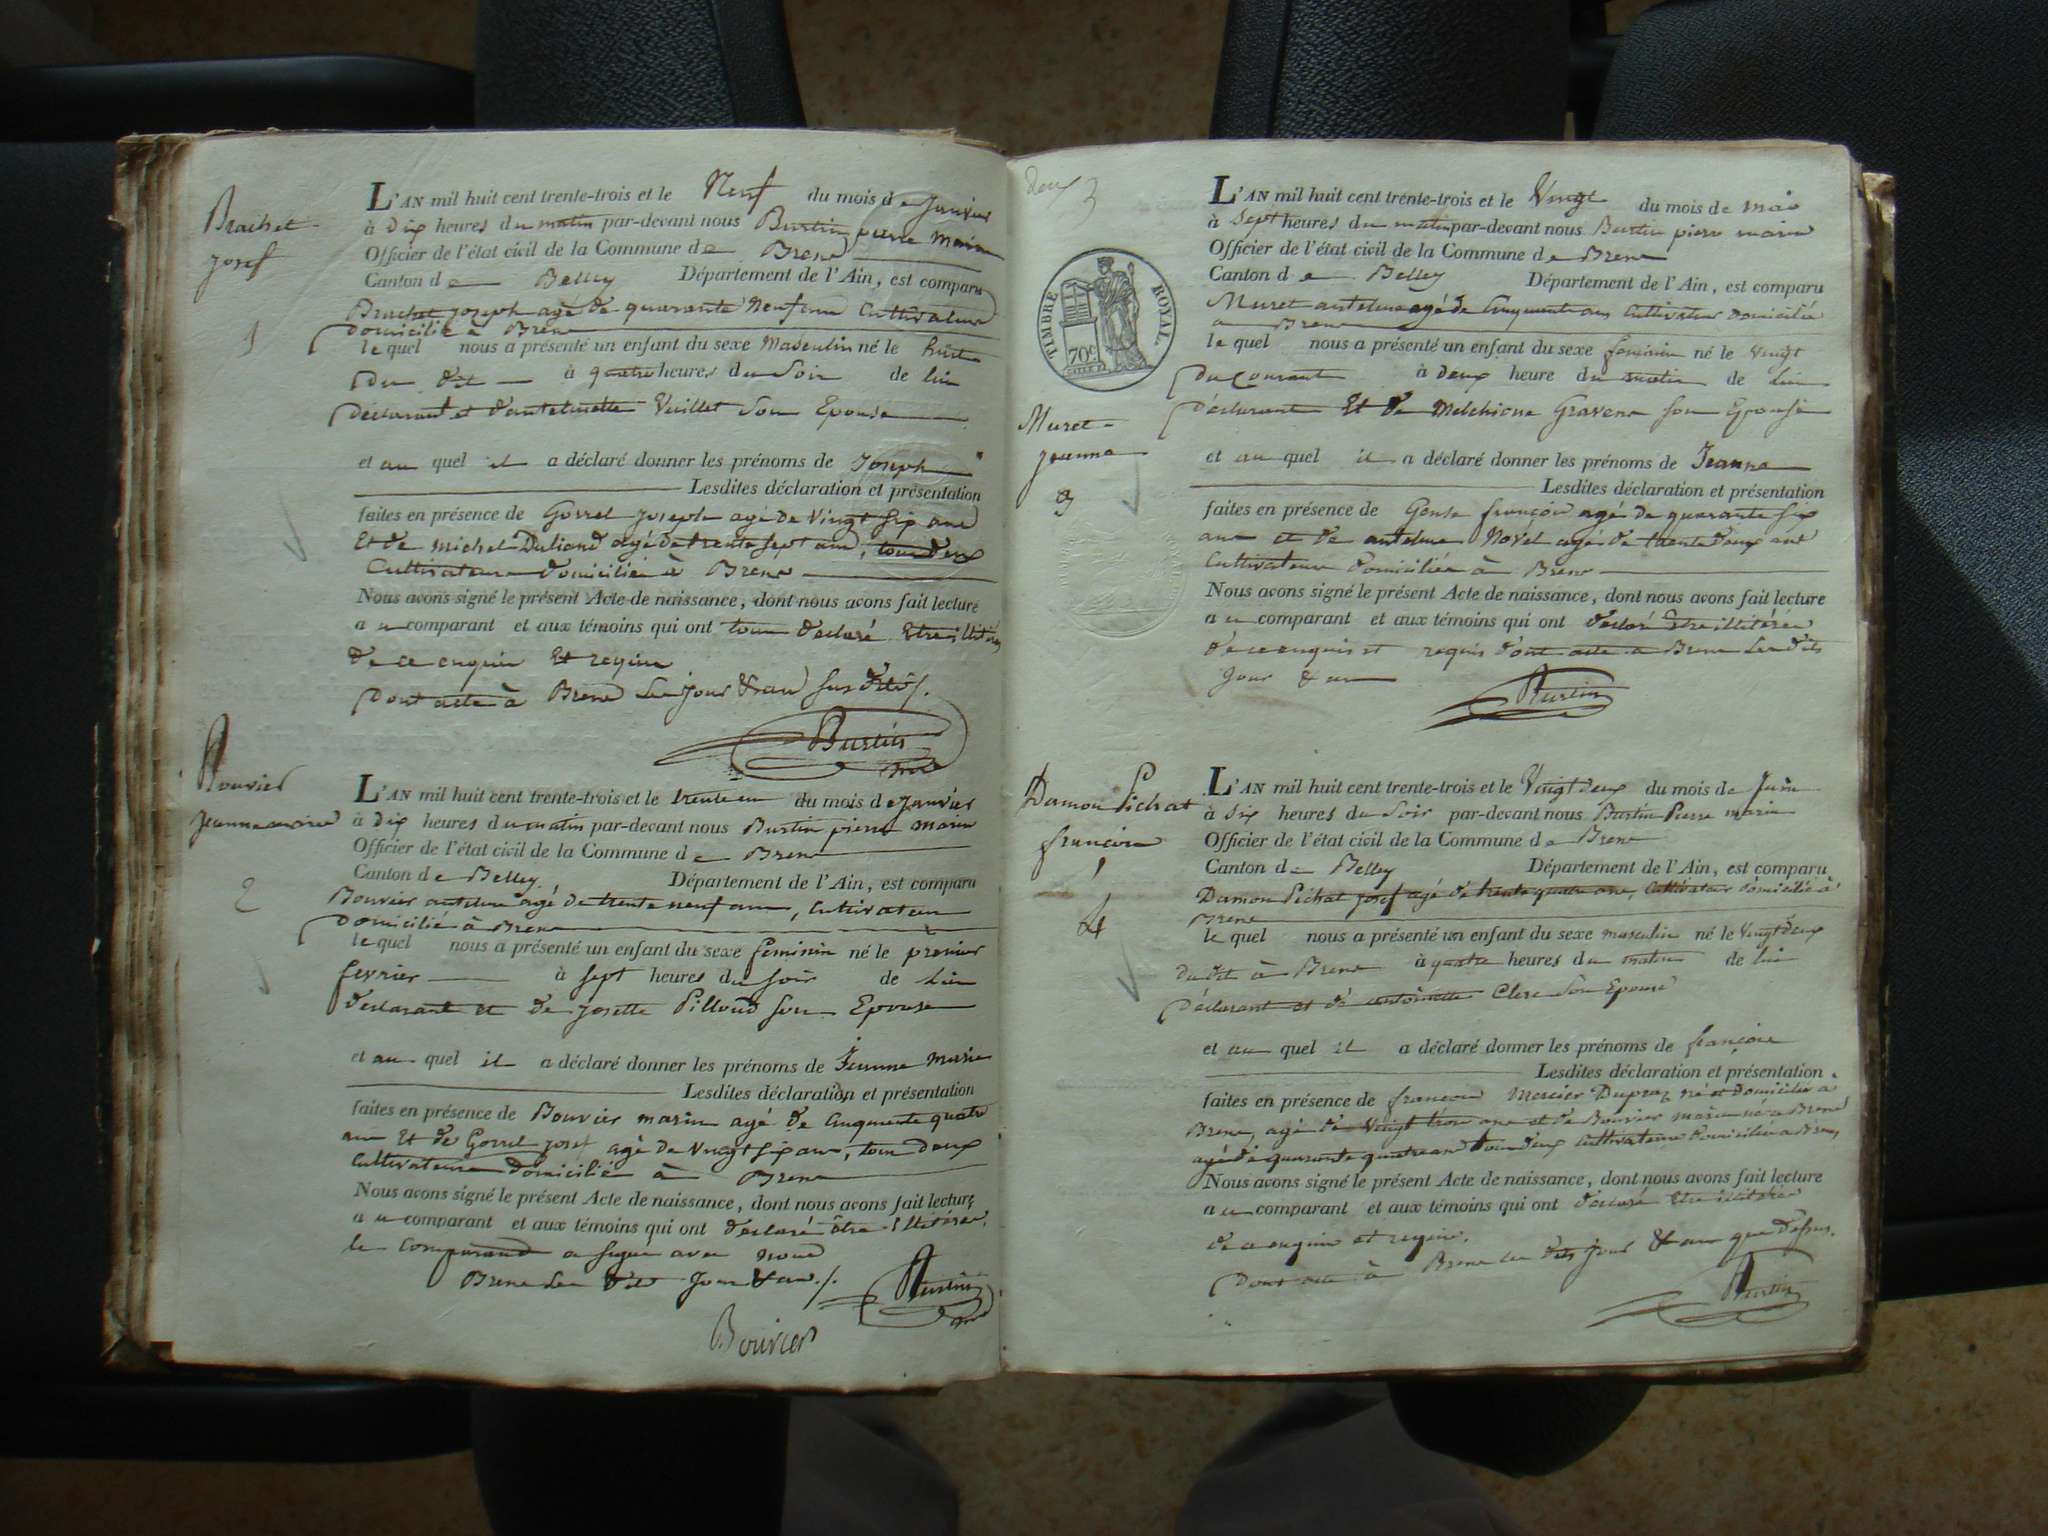 Brachet
Josef
1
L'AN mil huit cent trente-trois et le Neuf du mois de Janvier
à dix heures du matin par-devant nous Burtin pierre marin
Officier de l'état civil de la Commune de Brens
Canton de Belley Département de l'Ain, est comparu
Brachet Joseph agé de quarante Neuf ans Cultivateur
domicilié à Brens
le quel nous a présenté un enfant du sexe Masculin né le huit
du dit à quatre heures du Soir de lui
déclarant et d'antelmette Vuillet Son Epouse
et au quel il a déclaré donner les prénoms de Joseph
Lesdites déclaration et présentation
faites en présence de Gorrel Joseph agé de Vingt Six ans
Et de Michel Duliand agé de trente sept ans, tous deux
Cultivateurs domiciliés à Brens
Nous avons signé le présent Acte de naissance, dont nous avons fait lecture
au comparant et aux témoins qui ont tous déclaré Etre illitérés
de ce enquis Et requis
Dont acte à Brens Les jour & an sus dits.
Burtin
Bouvier
Jeanne marie
2
L'AN mil huit cent trente-trois et le trente un du mois de Janvier
à dix heures du matin par-devant nous Burtin pierre marin
Officier de l'état civil de la Commune de Brens
Canton de Belley Département de l'Ain, est comparu
Bouvier antelme agé de trente neuf ans, Cultivateur
domicilié à Brens
le quel nous a présenté un enfant du sexe feminin né le premier
fevrier à sept heures du soir de lui
déclarant et de Josette Pilloud son Epouse
et au quel il a déclaré donner les prénoms de Jeanne Marie
Lesdites déclaration et présentation
faites en présence de Bouvier marin agé de Cinquente quatre
ans Et de Gorrel Josef agé de Vingt six ans, tous deux
Cultivateurs domicilié à Brens
Nous avons signé le présent Acte de naissance, dont nous avons fait lecture
au comparant et aux témoins qui ont déclaré être Illitérés,
le Comparand a signé avec nous
Brens Les dits Jour & an.
Burtin
Bouvier
deux 3
TIMBRE ROYAL
70c
Muret
Jeanne
3
L'AN mil huit cent trente-trois et le Vingt du mois de mai
à Sept heures du matin par-devant nous Burtin pierre marin
Officier de l'état civil de la Commune de Brens
Canton de Belley Département de l'Ain, est comparu
Muret antelme agé de Cinquante ans Cultivateur domicilié
a Brens
le quel nous a présenté un enfant du sexe feminin né le Vingt
du Courant à deux heure du matin de lui
déclarant Et de Melchione Gravend son Epouse
et au quel il a déclaré donner les prénoms de Jeanne
Lesdites déclaration et présentation
faites en présence de François agé de quarante six
ans et de antelme Novel agé de trente deux ans
Cultivateurs domiciliés à Brens
Nous avons signé le présent Acte de naissance, dont nous avons fait lecture
au comparant et aux témoins qui ont déclaré Etre illitérés
de ce enquis et requis dont acte a Brens Les dits
Jour & an
Burtin
Damon Pichat
françois
4
L'AN mil huit cent trente-trois et le Vingt deux du mois de Juin
à Six heures du Soir par-devant nous Burtin Pierre marin
Officier de l'état civil de la Commune de Brens
Canton de Belley Département de l'Ain, est comparu
Damon Pichat josef agé de trente quatre ans, Cultivateur domicilié à
Brens
le quel nous a présenté un enfant du sexe masculin né le Vingt deux
du dit à Brens à quatre heures du matin de lui
Déclarant et de antoinette Clerc Son Epouse
et au quel il a déclaré donner les prénoms de françois
Lesdites déclaration et présentation
faites en présence de francois Mercier Dupraz né et domicilié à
Brens, agé de Vingt trois ans et de Bouvier marin né a Brens
agé de quarante quatre ans tous deux cultivateurs domiciliés a Brens,
Nous avons signé le présent Acte de naissance, dont nous avons fait lecture
au comparant et aux témoins qui ont déclaré Etre illitérés
de ce enquis et requis.
Dont acte à Brens les dits jour & an que dessus.
Burtin